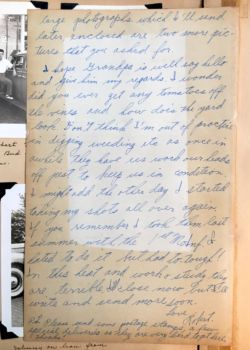 large photographs which I'll send
later enclosed are two more pic-
tures that you asked for.
I hope Grandpa is well say hello
and give him my regards. I wonder
did you ever get any tomatoes off
the vines and how does the yard
look. Don't think I'm out of practice
in digging weeding etc as once in
awhile they have us work our heads
off just to keep us in condition.
I might add the other day I started
taking my shots all over again
if you remember I took them last
summer with the 1st
I hated to do it but had to tough!
In this heat and work & study they
are terrible I close now but I'll
write and send more soon.
Love
Robert
P.S. Please send some postage stamps a few
special deliveries as they are very hard to get here
Thanks!